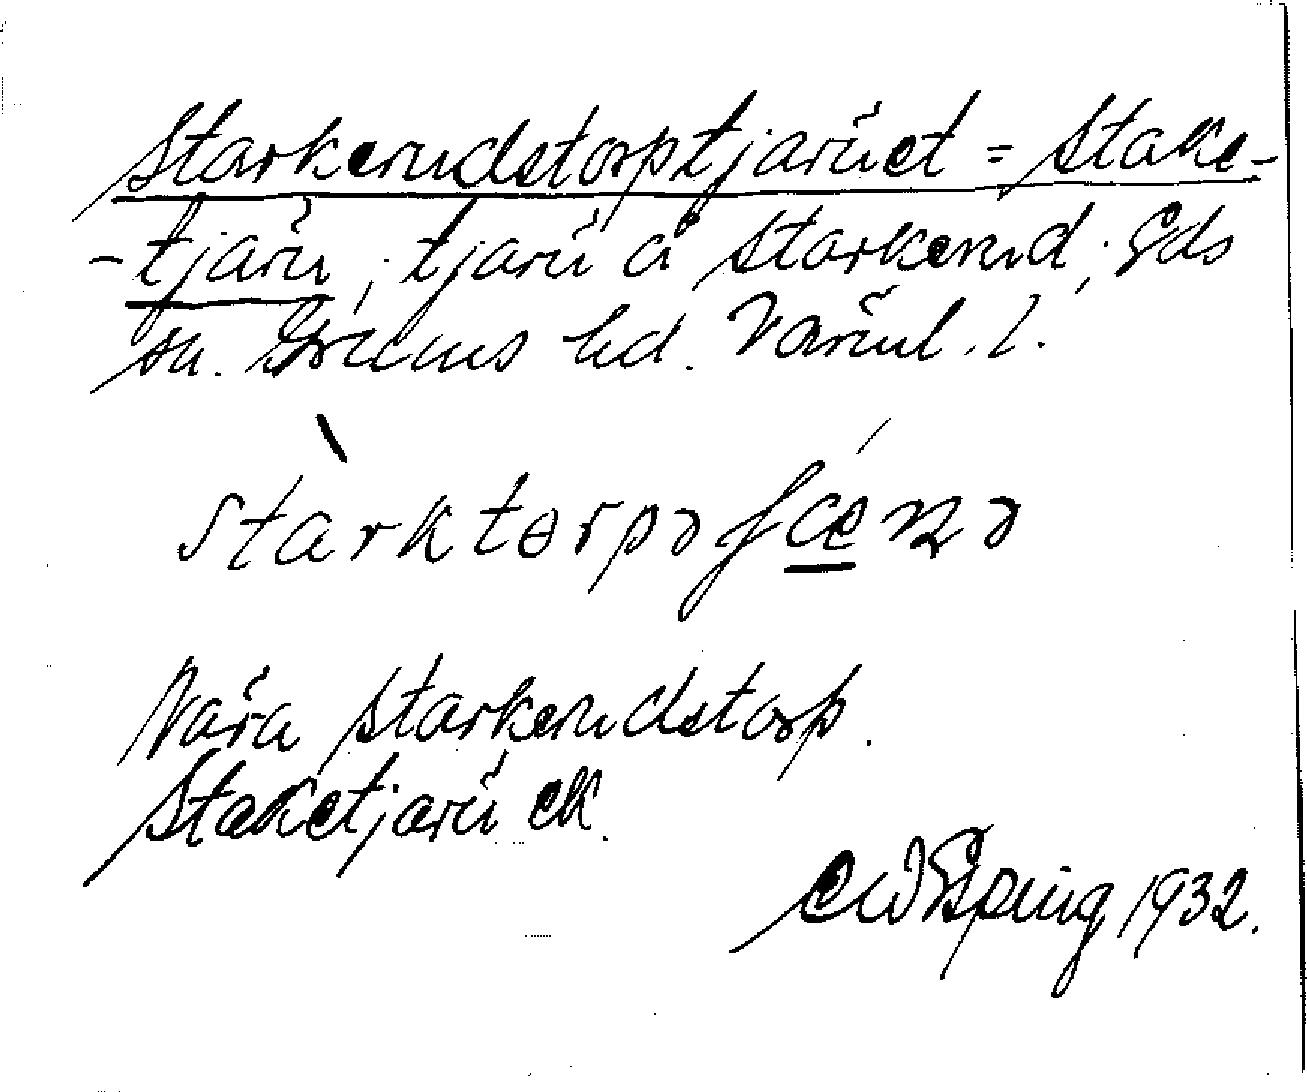 Starkerudstorptjärnet = Stake-
-tjärn, tjärn å Starkerud, Eds
sn. Grums hd. Värml. l.
starktorpəʃænə
Nära Starkerudstorp.
Staketjärn ek.
1932.